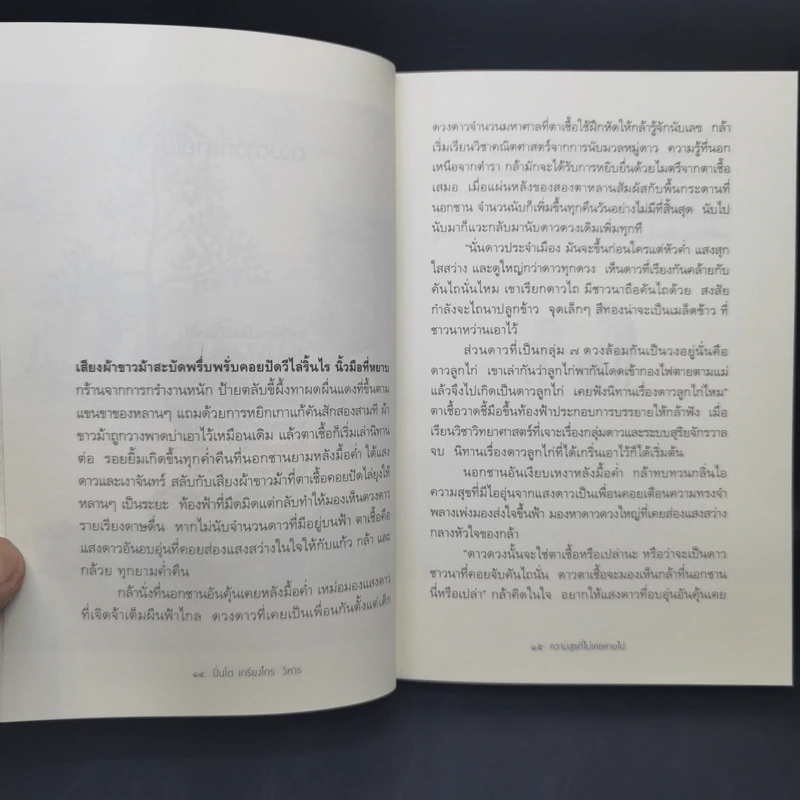 เสียงผ้าขาวม้าสะบัดพรึ่บพรั่บคอยปัดวีไล่ริ้นไร นิ้วมือที่หยาบ
กร้านจากการกรำงานหนัก ป้ายตลับขี้ผึ้งทาผดผื่นแดงที่ขึ้นตาม
แขนขาของหลานๆ แถมด้วยการหยิกเกาแก้คันสักสองสามที ผ้า
ขาวม้าถูกวางพาดบ่าเอาไว้เหมือนเดิม แล้วตาเชื้อก็เริ่มเล่านิทาน
ต่อ รอยยิ้มเกิดขึ้นทุกค่ำคืนที่นอกชานยามหลังมื้อค่ำ ใต้แสง
ดาวและเงาจันทร์ สลับกับเสียงผ้าขาวม้าที่ตาเชื้อคอยปัดไล่ยุงให้
หลานๆ เป็นระยะ ท้องฟ้าที่มืดมิดแต่กลับทำให้มองเห็นดวงดาว
รายเรียงดาษดื่น หากไม่นับจำนวนดาวที่มีอยู่บนฟ้า ตาเชื้อคือ
แสงดาวอันอบอุ่นที่คอยส่องแสงสว่างในใจให้กับแก้ว กล้า และ
กล้วย ทุกยามค่ำคืน
กล้านั่งที่นอกชานอันคุ้นเคยหลังมื้อค่ำ เหม่อมองแสงดาว
ที่เจิดจ้าเต็มผืนฟ้าไกล ดวงดาวที่เคยเป็นเพื่อนกันตั้งแต่เด็ก
๑๔ ปิ่นโต เกรียงไกร วิหาร
ดวงดาวจำนวนมหาศาลที่ตาเชื้อใช้ฝึกหัดให้กล้ารู้จักนับเลข กล้า
เริ่มเรียนวิชาคณิตศาสตร์จากการนับมวลหมู่ดาว ความรู้ที่นอก
เหนือจากตำรา กล้ามักจะได้รับการหยิบยื่นด้วยไมตรีจากตาเชื้อ
เสมอ เมื่อแผ่นหลังของสองตาหลานสัมผัสกับพื้นกระดานที่
นอกชาน จำนวนนับก็เพิ่มขึ้นทุกคืนวันอย่างไม่มีที่สิ้นสุด นับไป
นับมาก็แวะกลับมานับดาวดวงเดิมเพิ่มทุกที
"นั่นดาวประจำเมือง มันจะขึ้นก่อนใครแต่หัวค่ำ แสงสุก
ใสสว่าง และดูใหญ่กว่าดาวทุกดวง เห็นดาวที่เรียงกันคล้ายกับ
คันไถนั่นไหม เขาเรียกดาวไถ มีชาวนาถือคันไถด้วย สงสัย
กำลังจะไถนาปลูกข้าว จุดเล็กๆ สีทองน่าจะเป็นเมล็ดข้าว ที่
ชาวนาหว่านเอาไว้
ส่วนดาวที่เป็นกลุ่ม ๗ ดวงล้อมกันเป็นวงอยู่นั่นคือ
ดาวลูกไก่ เขาเล่ากันว่าลูกไก่พากันโดดเข้ากองไฟตายตามแม่
แล้วจึงไปเกิดเป็นดาวลูกไก่ เคยฟังนิทานเรื่องดาวลูกไก่ไหม"
ตาเชื้อวาดชี้มือขึ้นท้องฟ้าประกอบการบรรยายให้กล้าฟัง เมื่อ
เรียนวิชาวิทยาศาสตร์ที่เจาะเรื่องกลุ่มดาวและระบบสุริยจักรวาล
จบ นิทานเรื่องดาวลูกไก่ที่ได้เกริ่นเอาไว้ก็ได้เริ่มต้น
นอกชานอันเงียบเหงาหลังมื้อค่ำ กล้าทบทวนกลิ่นไอ
ความสุขที่มีไออุ่นจากแสงดาวเป็นเพื่อนคอยเตือนความทรงจำ
พลางเพ่งมองส่งใจขึ้นฟ้า มองหาดาวดวงใหญ่ที่เคยส่องแสงสว่าง
กลางหัวใจของกล้า
"ดาวดวงนั้นจะใช่ตาเชื้อหรือเปล่านะ หรือว่าจะเป็นดาว
ชาวนาที่คอยจับคันไถนั่น ดาวตาเชื้อจะมองเห็นกล้าที่นอกชาน
นี่หรือเปล่า" กล้าคิดในใจ อยากให้แสงดาวที่อบอุ่นอันคุ้นเคย
๑๕ ความสุขที่ไม่เคยหายไป